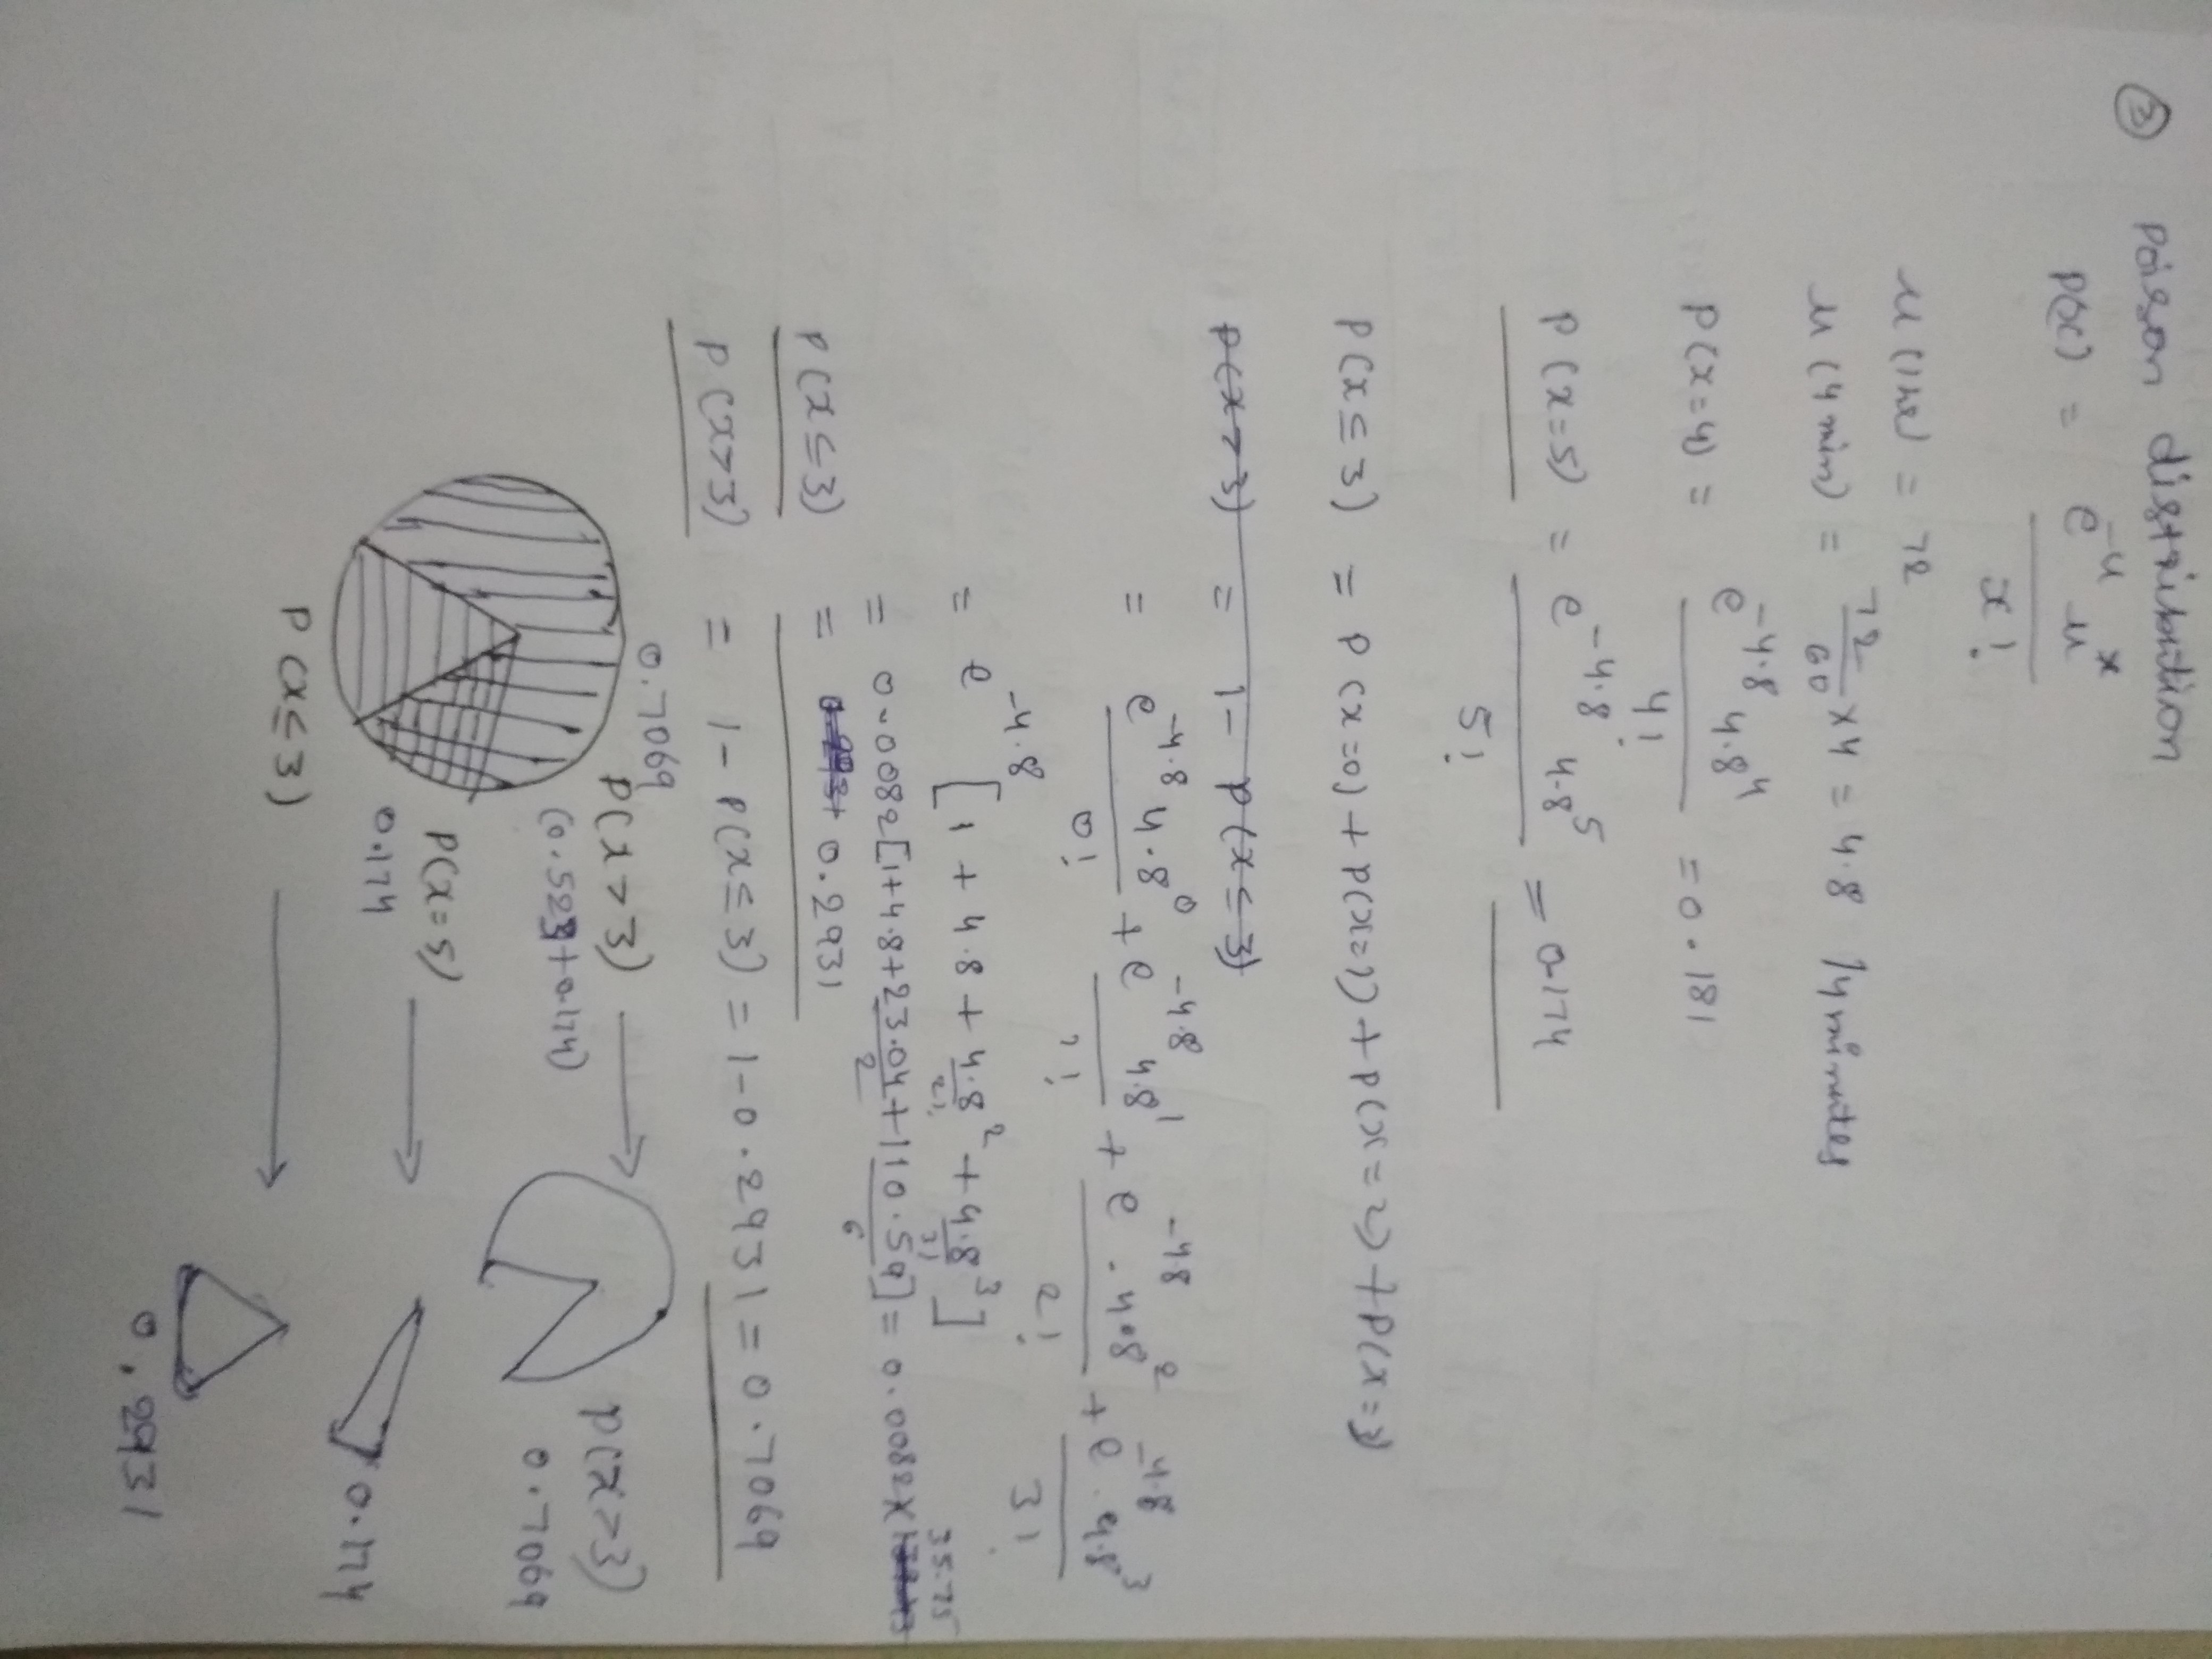 ③ Poison distribution
P(x) = e^-μ μ^x / x!
μ (1hr) = 72
μ (4 min) = 72/60 × 4 = 4.8 /4 minutes
P(x=4) = e^-4.8 4.8^4 / 4! = 0.181
P(x=5) = e^-4.8 4.8^5 / 5! = 0.174
P(x≤3) = P(x=0) + P(x=1) + P(x=2) + P(x=3)
P(x>3) = 1 - P(x≤3)
= e^-4.8 4.8^0 / 0! + e^-4.8 4.8^1 / 1! + e^-4.8 . 4.8^2 / 2! + e^-4.8 . 4.8^3 / 3!
= e^-4.8 [1 + 4.8 + 4.8^2/2! + 4.8^3/3!]
= 0.0082[1+4.8+23.04/2+110.59/6] = 0.0082× 35.75
P(x≤3) = 0.2931
P(x>3) = 1 - P(x≤3) = 1-0.2931 = 0.7069
0.7069
P(x>3)
(0.5229+0.174)
P(x>3)
0.7069
P(x=5)
0.174
0.174
P(x≤3)
0.2931